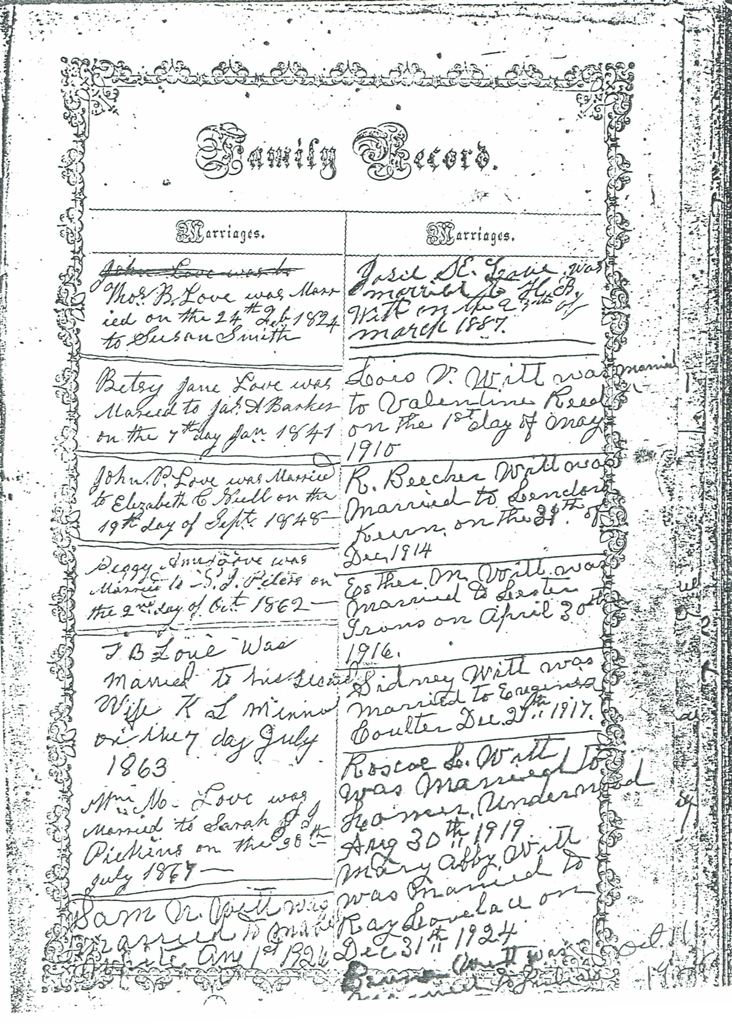 Family Record.
Marriages.
John Love was
Thos. B. Love was Marr
ied on the 24th Feb 1824
to Susan Smith
Betsy Jane Love was
Married to Jas. A Barker
on the 7th day Jan. 1841
John P. Love was Married
to Elizabeth C. on the
19th day of Sept. 1848
Peggy Ann Love was
Married to S. J. Peters on
the 2nd day of Oct. 1862
T B Love Was
married to his second
Wife K L
on the 7 day July
1863
Wm M. Love was
Married to Sarah J
Pickens on the 30th
July 1867
Sam W. Witt was
married to
1st 1926
Marriages.
Josie E. Love was
married to H. B.
Witt on the of
March 1887.
Lois V. Witt was married
to Valentine Reed
on the 1st day of May
1910
R. Beecher Witt was
Married to
Kern, on the 29th of
Dec, 1914
Esther M. Witt was
Married to Lester
Irons on April 30th
1916.
Sidney Witt was
married to Eugenia
Coulter Dec. 27th 1917.
Roscoe L. Witt
was Married to
Underwood
Aug 30th 1919
Mary Abby Witt
was Married to
Ray Lovelace on
Dec 31st 1924
Witt was
married to
Oct 11